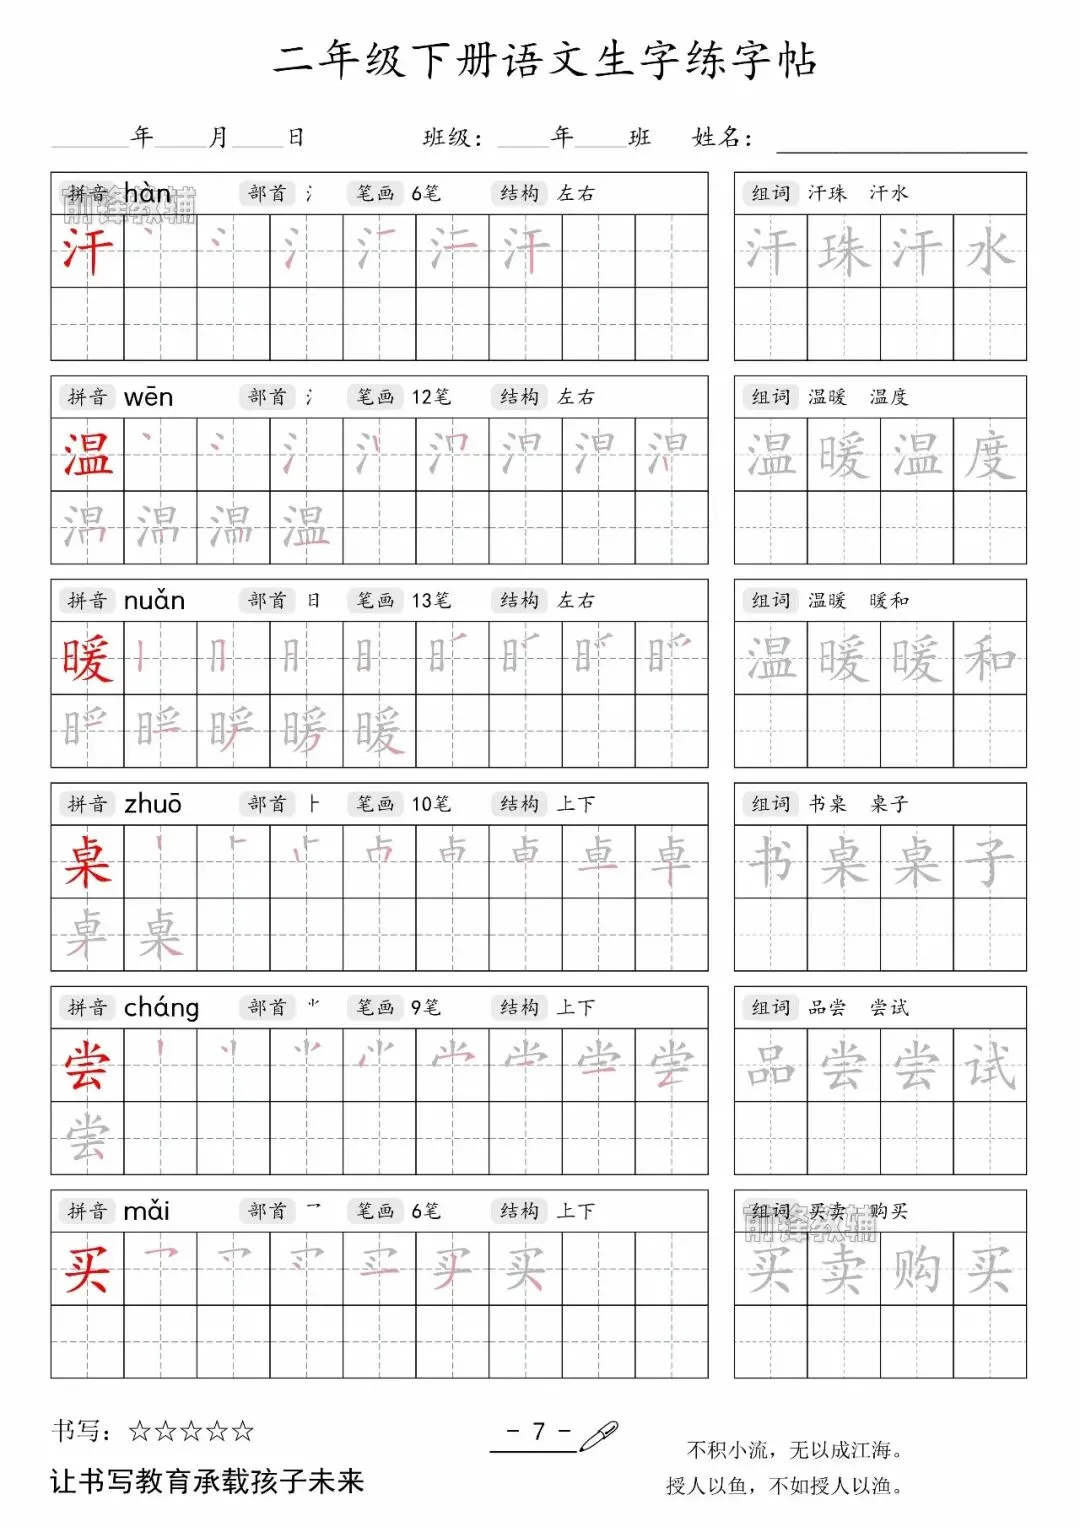 二年级下册语文生字练字帖
______年____月____日 班级：____年____班 姓名：____________
拼音 hàn 部首 氵 笔画 6笔 结构 左右 组词 汗珠 汗水
前锋教辅
汗 汗 珠 汗 水
拼音 wēn 部首 氵 笔画 12笔 结构 左右 组词 温暖 温度
温 温 暖 温 度
温
拼音 nuǎn 部首 日 笔画 13笔 结构 左右 组词 温暖 暖和
暖 温 暖 暖 和
暖
拼音 zhuō 部首 ⺊ 笔画 10笔 结构 上下 组词 书桌 桌子
桌 书 桌 桌 子
桌
拼音 cháng 部首 ⺌ 笔画 9笔 结构 上下 组词 品尝 尝试
尝 品 尝 尝 试
尝
拼音 mǎi 部首 乛 笔画 6笔 结构 上下 组词 买卖 购买
前锋教辅
买 买 卖 购 买
书写：☆☆☆☆☆
- 7 -
不积小流，无以成江海。
让书写教育承载孩子未来
授人以鱼，不如授人以渔。